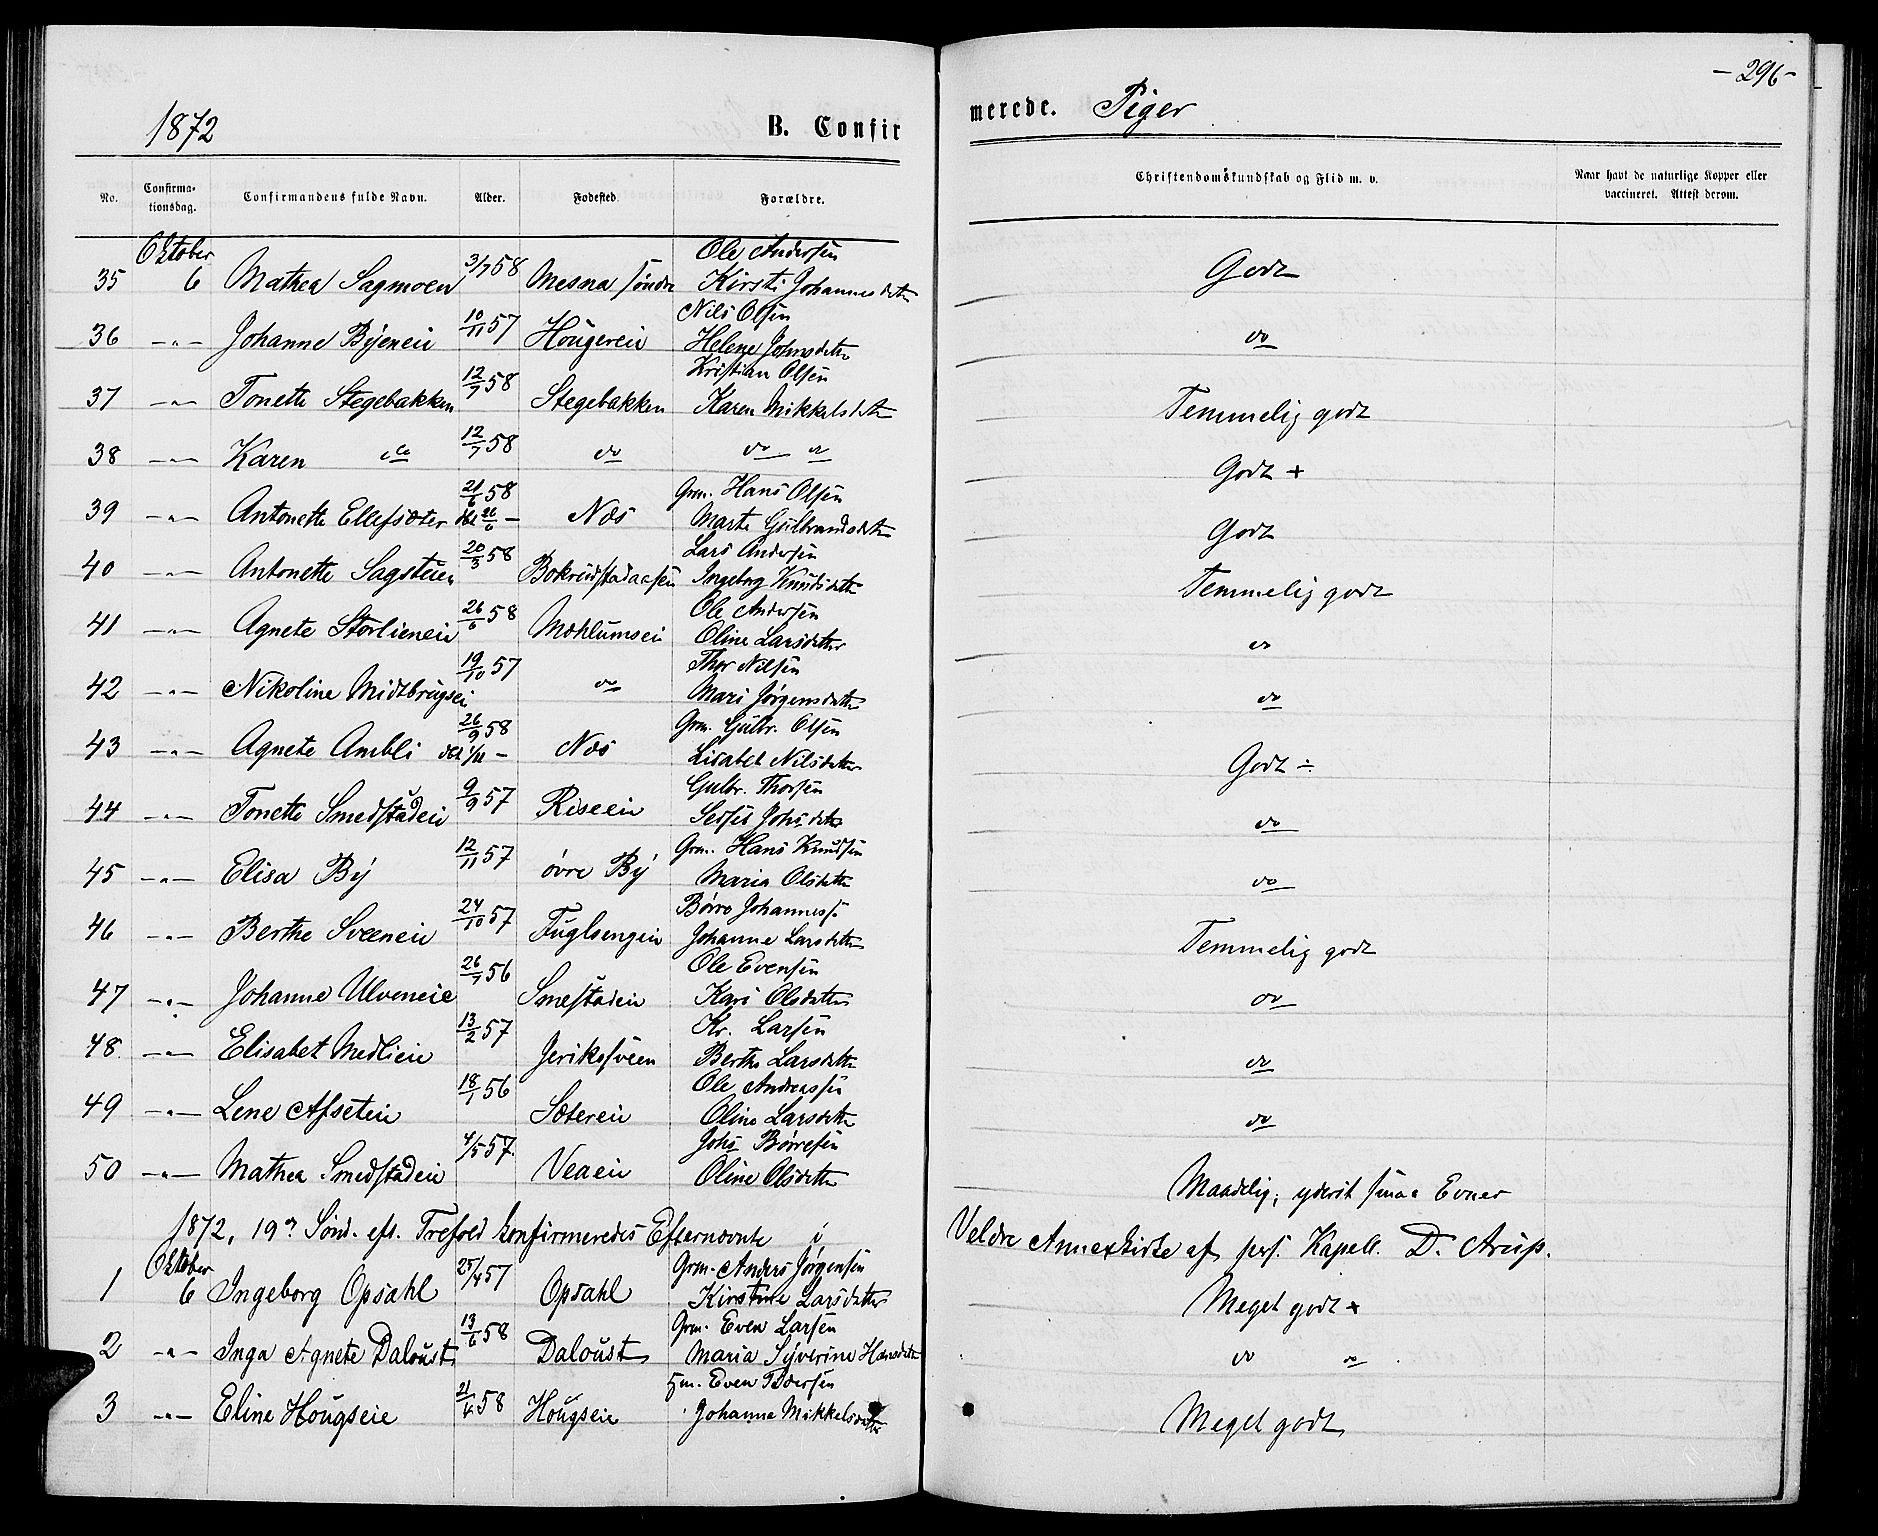 -296-
1872 B. Confirmerede. Piger
No. Confirmationsdag. Confirmandens fulde Navn. Alder. Fødested. Forældre. Christendomskundskab og Flid m. v. Naar havt de naturlige Kopper eller vaccineret. Attest derom.
Oktober Ole Andersen
35 6 Mathea Sagmoen 3/7 58 Mesna søndre Kirsti Johannesdatter Godt
Nils Olsen
36 -"- Johanne Byeneie 10/11 57 Hougereie Helene Johnsdatter do
Kristian Olsen
37 -"- Tonette Stegebakken 12/7 58 Stegebakken Karen Mikkelsdatter Temmelig godt
38 -"- Karen do 12/7 58 do do do Godt +
21/6 58 Grm. Hans Olsen
39 -"- Antonette Ellefsæter døbt 26/6 - Næs Marte Gulbrandsdatter Godt
Lars Andersen
40 -"- Antonette Sagstuen 20/3 58 Ingeborg Knudsdatter Temmelig godt
Ole Andersen
41 -"- Agnete Storlieneie 26/6 58 Mæhlumseie Oline Larsdatter do
Thor Nilsen
42 -"- Nikoline 19/10 57 do Mari Jørgensdatter do
26/9 58 Grm. Gulbr. Olsen
43 -"- Agnete Ambli døbt 1/11 - Næs Lisabet Nilsdatter Godt ÷
Gulbr. Thorsen
44 -"- Tonette Smedstadeie 9/9 57 Riseeie Johsdatter do
Grm. Hans Knudsen
45 -"- Elisa By 12/11 57 øvre By Maria Olsdatter do
Børre Johanness.
46 -"- Berthe Sveeneie 24/10 57 Fuglsengeie Johanne Larsdatter Temmelig godt
Ole Evensen
47 -"- Johanne Ulveneie 26/7 56 Smestadeie Kari Olsdatter do
Kr. Larsen
48 -"- Elisabet Medlieie 13/2 57 Jeriksveen Berthe Larsdatter do
Ole Andreassen
49 -"- Lene Afseteie 18/1 56 Sætereie Oline Larsdatter do
Johs Børresen
50 -"- Mathea Smedstadeie 4/5 57. Veaeie Oline Olsdatter Maadelig; yderst smaa Evner
1872, 19de Sønd. eft. Trefold. konfirmeredes Efternævnte i Veldre Annexkirke af pers. Kapell. D. Arup.
Oktober Grm. Anders Jørgensen
1 6 Ingeborg Opsahl 25/4 57 Opsahl Kirstine Larsdatter Meget godt +
Grm. Even Larsen
2 -"- Inga Agnete Daloust 13/6 58 Daloust Maria Syverine Hansdatter do do
Even Pedersen
3 -"- Eline Hougseie 21/6 58 Hougseie Johanne Mikkelsdatter Meget godt